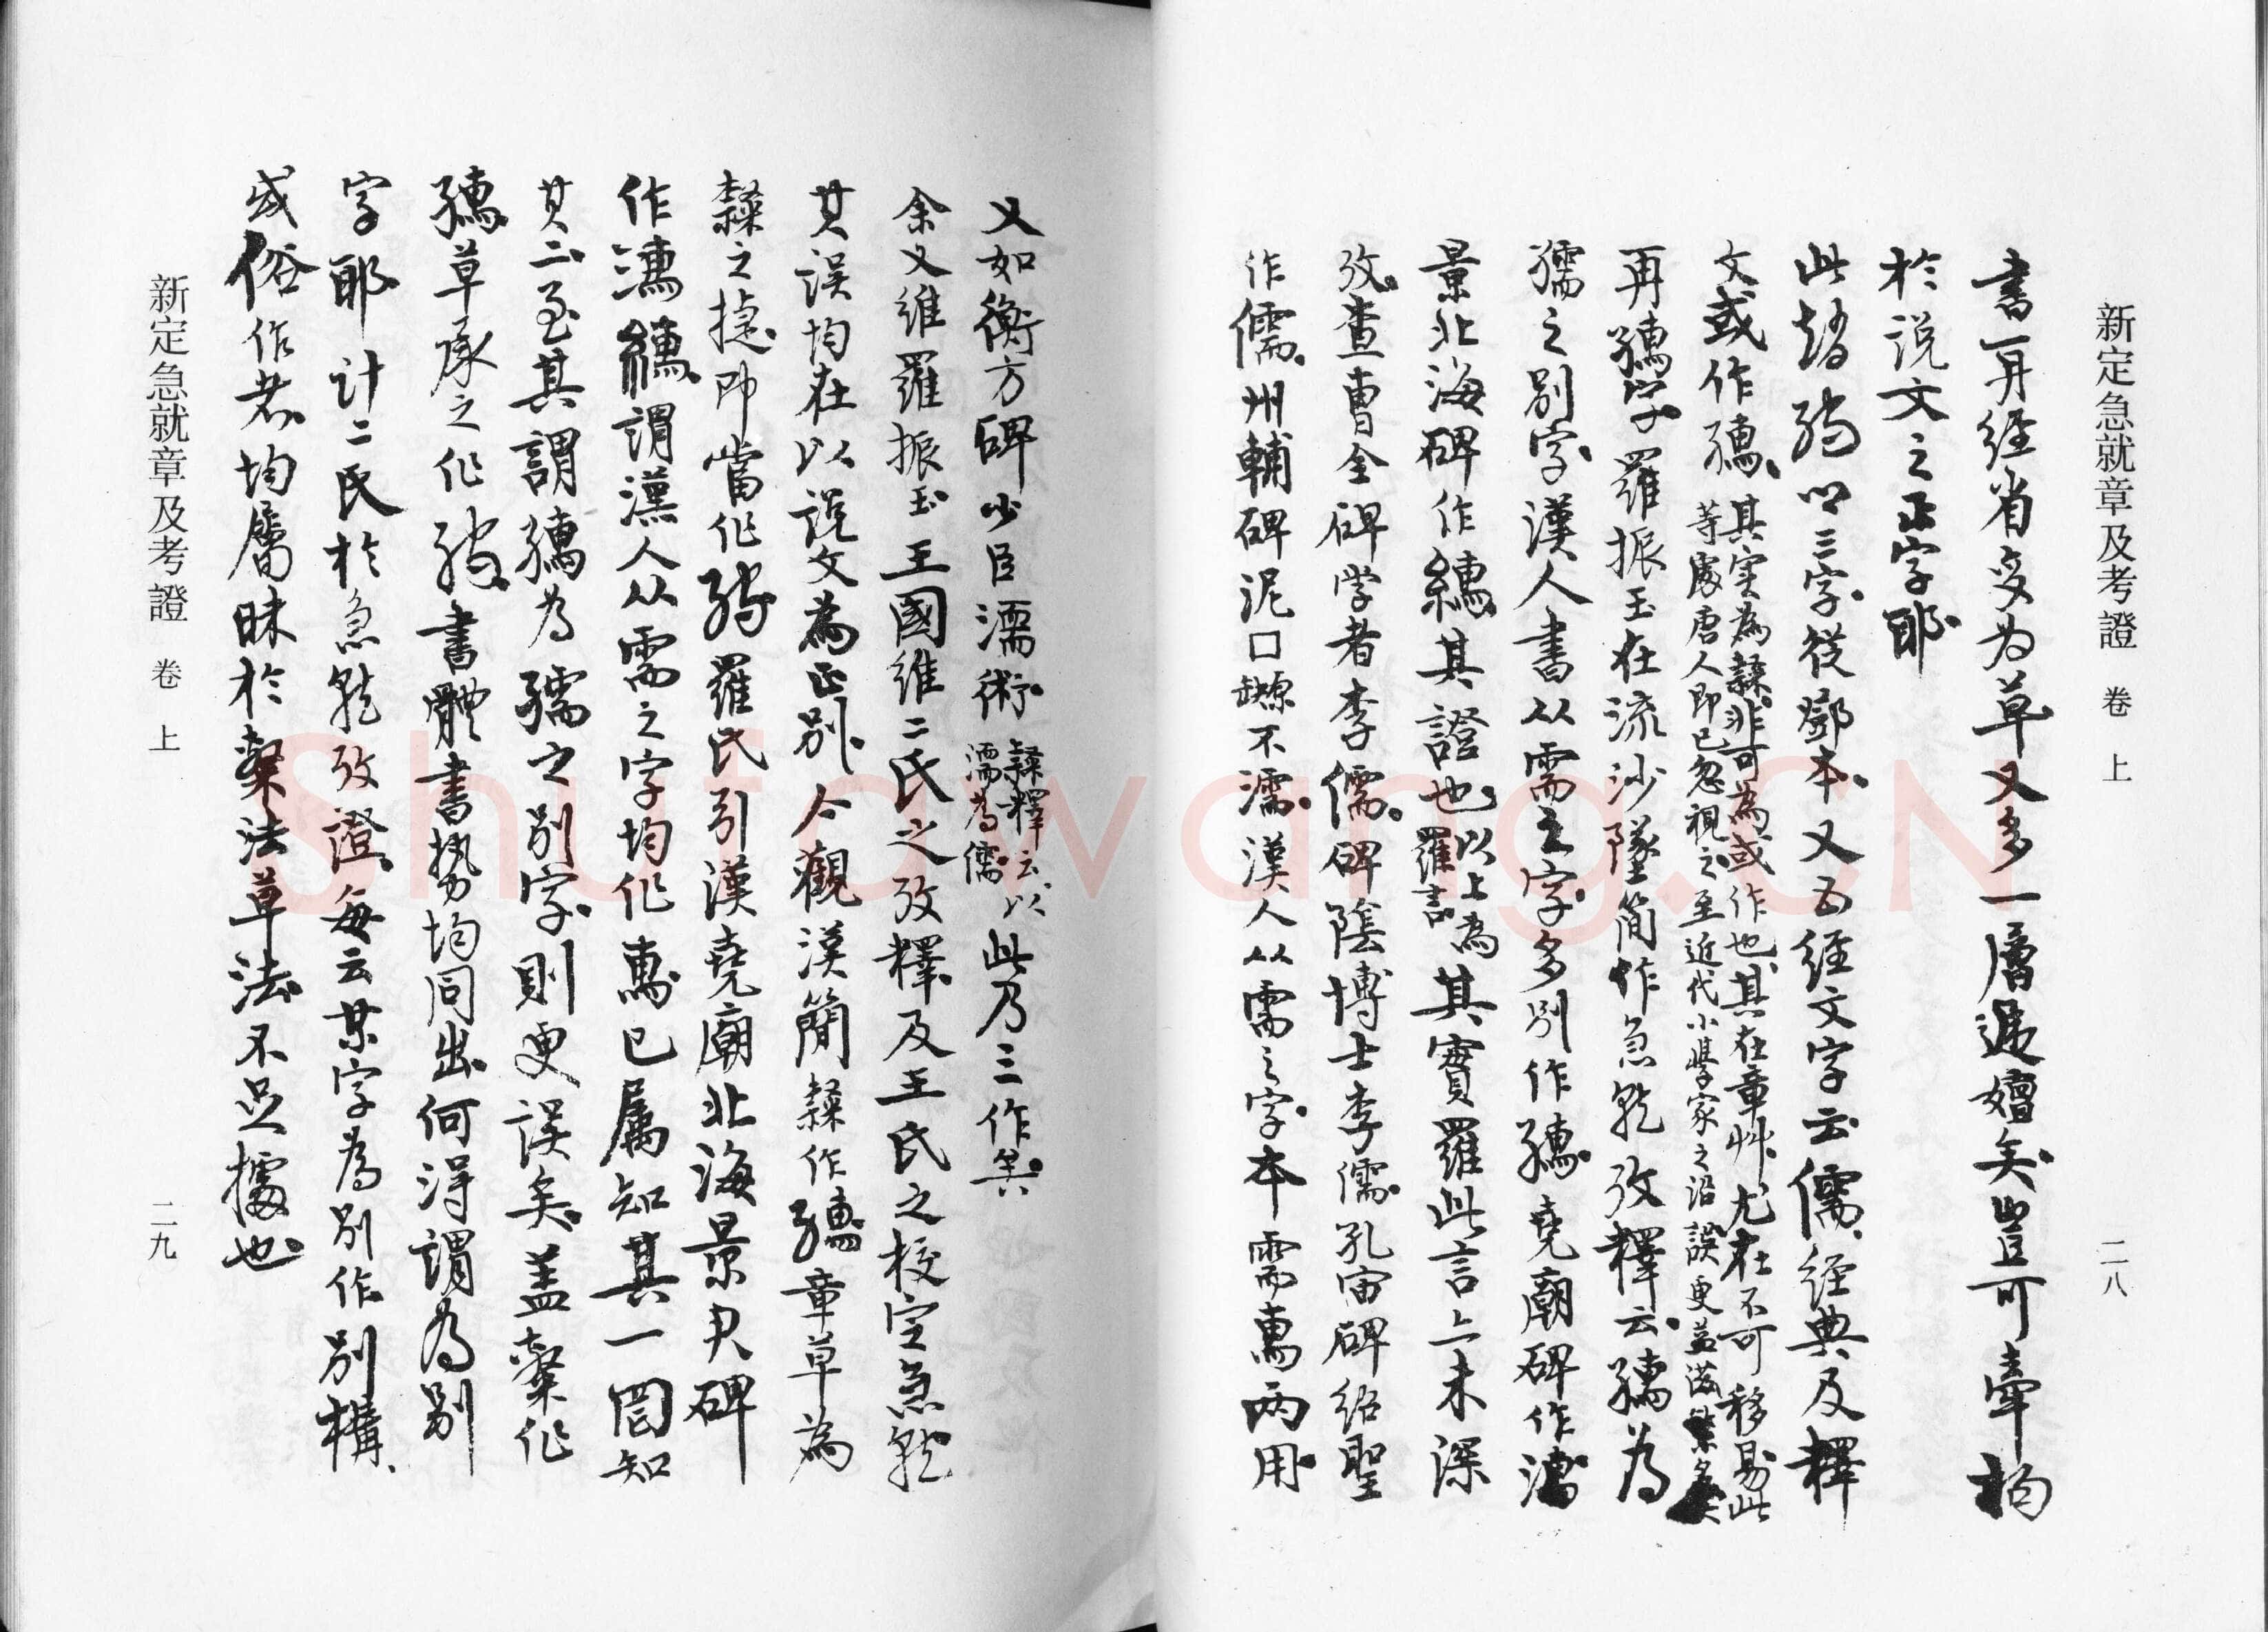 新定急就章及考證 卷上
二八
書再經省変为草又多一層遞嬗矣豈可牽拘
於说文之正字耶
此 三字從鄧本又五經文字云儒經典及釋
文或作𤔡其実為隸非可為或作也其在章艸尤在不可移易此
等處唐人即已忽視之至近代小學家之沿誤更益滋繁多矣
再 字羅振玉在流沙墜簡作急就攷釋云 为
孺之别字漢人書从需之字多别作 堯廟碑作
景北海碑作 其證也以上為羅言其實羅此言亦未深
攷查曹全碑学者李儒碑陰博士李儒孔宙碑紹聖
作儒州輔碑泥口缺不濡漢人从需之字本需 两用
又如衡方碑少臣濡術隸釋云以濡為儒此乃三作矣
余又維羅振玉王國維二氏之攷釋及王氏之校定急就
其误均在以説文為正别今觀漢簡隸作 章草為
隸之捷即當作 羅氏引漢堯廟北海景尹碑
作 謂漢人从需之字均作 已屬知其一罔知
其二至其謂 为孺之别字則更误矣盖 作
 草承之作 書體書勢均同出何得謂为别
字耶计二氏於急就攷證每云某字為别作别構
或俗作者均屬昧於 法草法不足據也
新定急就章及考證 卷上
二九
Shufawang.CN